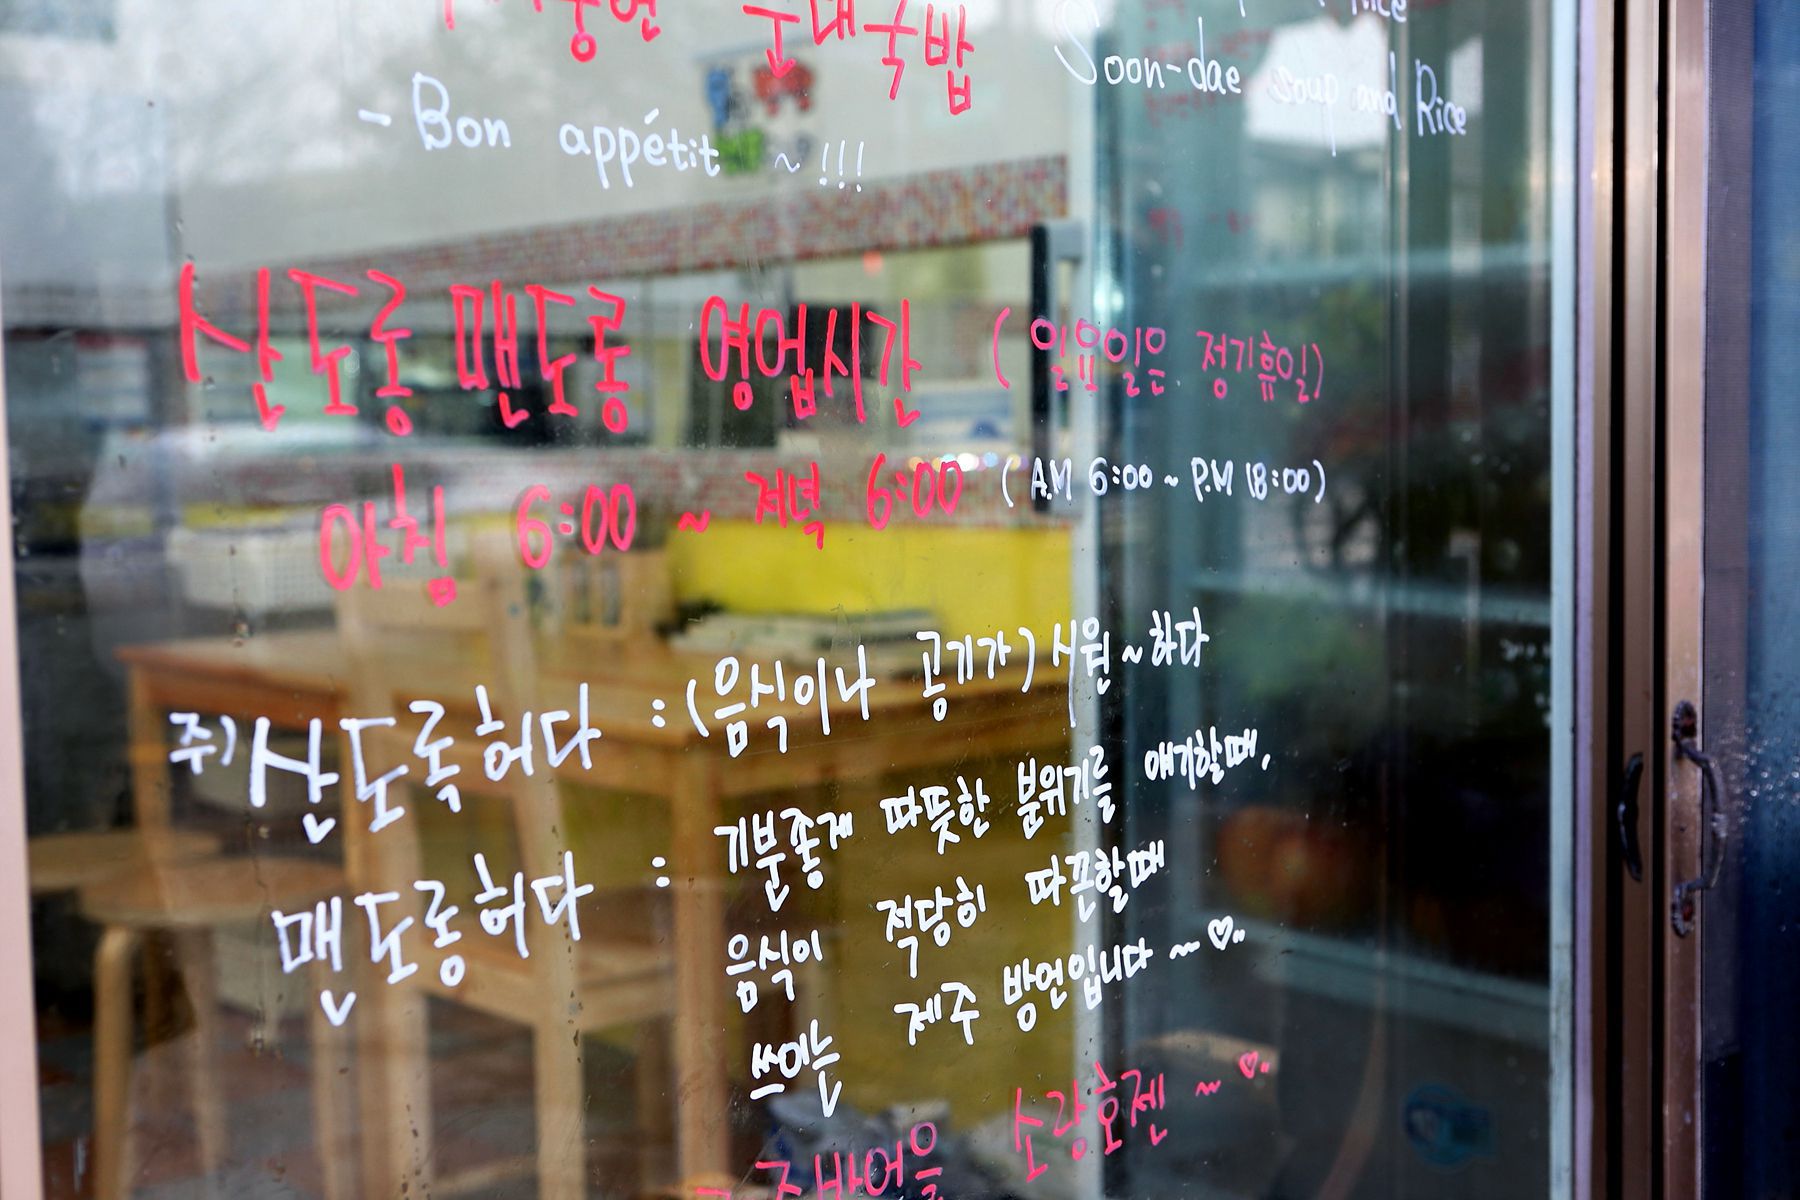 순대국밥 Soon-dae soup and Rice
- Bon appétit ~ !!!
산도롱 맨도롱 영업시간 (일요일은 정기휴일)
아침 6:00 ~ 저녁 6:00 (A.M 6:00 ~ P.M 18:00)
주) 산도록허다 : (음식이나 공기가) 시원~하다
맨도롱허다 : 기분좋게 따뜻한 분위기를 얘기할때,
음식이 적당히 따끈할때
쓰이는 제주 방언입니다 ~ ♡..
소랑호젠 ~ ♡..